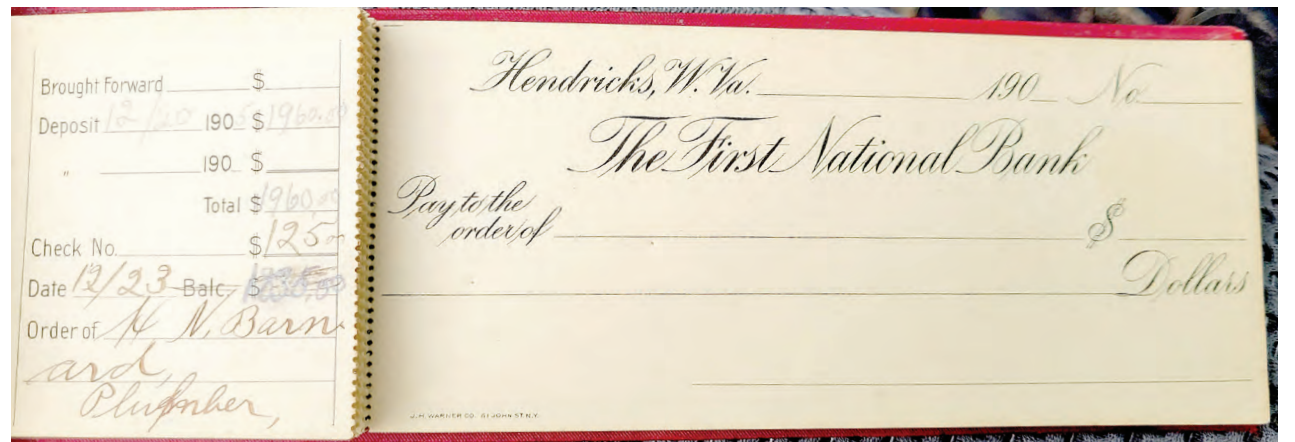 Brought Forward $
Deposit 12/20 1905 $1960.00
" 190_ $
Total $1960.00
Check No. $125.00
Date 12/23 Balc. $
Order of H N. Barn
ard,
Plumber,
Hendricks, W. Va. 190_ No.
The First National Bank
Pay to the
order of $
Dollars
J.H. WARNER CO. 61 JOHN ST. N.Y.